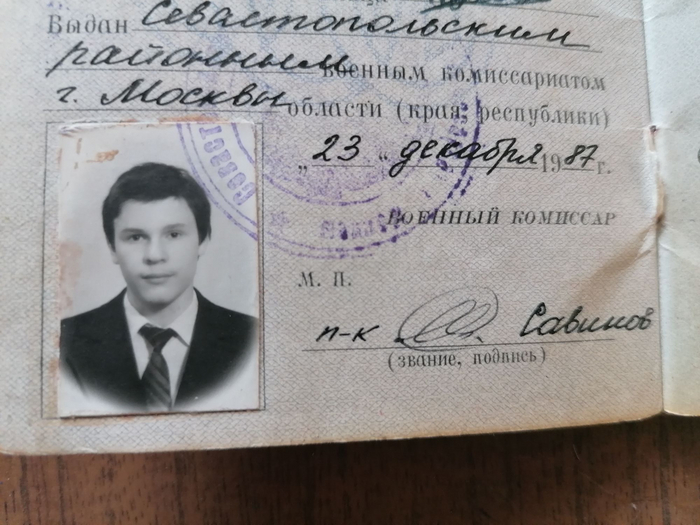 Выдан Севастопольским
районным военным комиссариатом
г. Москвы области (края, республики)
„23“ декабря 1987 г.
ВОЕННЫЙ КОМИССАР
М. П.
п-к Савинов
(звание, подпись)